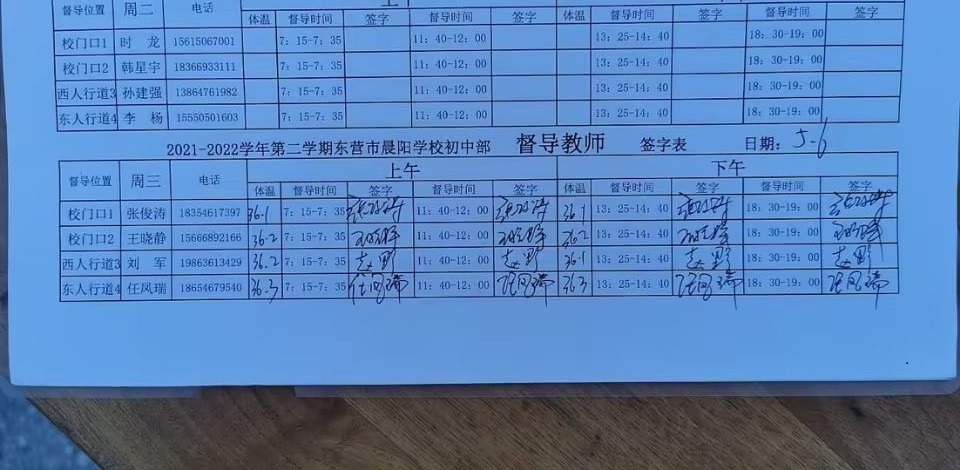 上午
督导位置 周二 电话 体温 督导时间 签字 督导时间 签字 体温 督导时间 签字 督导时间 签字
校门口1 时 龙 15615067001 7: 15-7: 35 11: 40-12: 00 13: 25-14: 40 18: 30-19: 00
校门口2 韩星宇 18366933111 7: 15-7: 35 11: 40-12: 00 13: 25-14: 40 18: 30-19: 00
西人行道3 孙建强 13864761982 7: 15-7: 35 11: 40-12: 00 13: 25-14: 40 18: 30-19: 00
东人行道4 李 杨 15550501603 7: 15-7: 35 11: 40-12: 00 13: 25-14: 40 18: 30-19: 00
2021-2022学年第二学期东营市晨阳学校初中部 督导教师 签字表 日期: 5-6
督导位置 周三 电话 上午 下午
体温 督导时间 签字 督导时间 签字 体温 督导时间 签字 督导时间 签字
校门口1 张俊涛 18354617397 36.1 7: 15-7: 35 张俊涛 11: 40-12: 00 张俊涛 36.1 13: 25-14: 40 张俊涛 18: 30-19: 00 张俊涛
校门口2 王晓静 15666892166 36.2 7: 15-7: 35 王晓静 11: 40-12: 00 王晓静 36.2 13: 25-14: 40 王晓静 18: 30-19: 00 王晓静
西人行道3 刘 军 19863613429 36.2 7: 15-7: 35 赵野 11: 40-12: 00 赵野 36.1 13: 25-14: 40 赵野 18: 30-19: 00 赵野
东人行道4 任凤瑞 18654679540 36.3 7: 15-7: 35 任凤瑞 11: 40-12: 00 任凤瑞 36.3 13: 25-14: 40 任凤瑞 18: 30-19: 00 任凤瑞